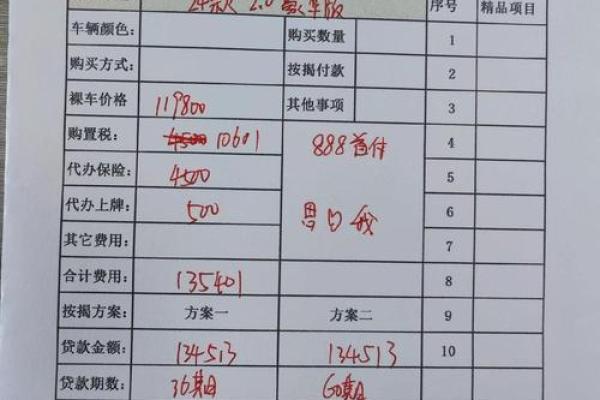 24款 2.0 豪华版 序号 精品项目
车辆颜色: 购买数量 1
购买方式: 按揭付款 2
裸车价格 119800 其他事项 3
购置税: 4500 10601 888首付 4
代办保险: 4500 5
代办上牌: 500 6
其它费用: 7
合计费用: 135401 8
按揭方案: 方案一 方案二 9
贷款金额: 134513 134513 10
贷款期数: 36期 60期